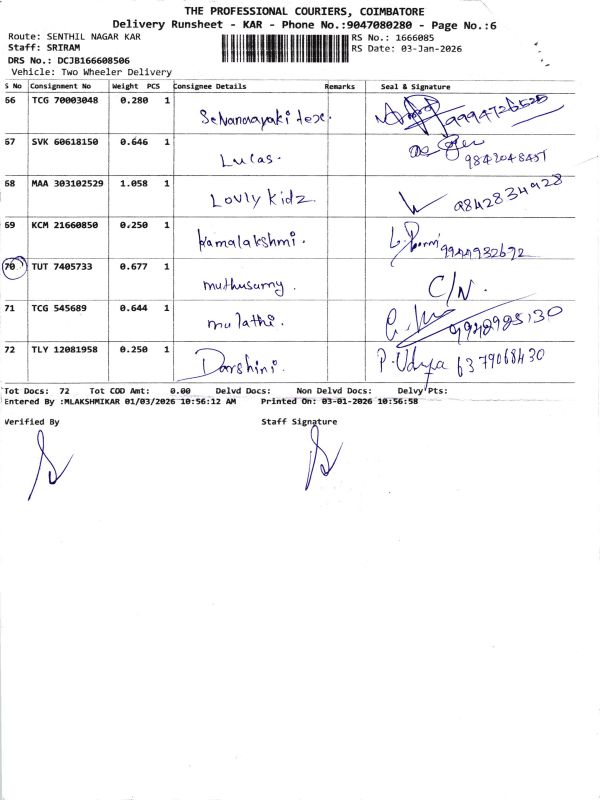 THE PROFESSIONAL COURIERS, COIMBATORE
Delivery Runsheet - KAR - Phone No.:9047080280 - Page No.:6
Route: SENTHIL NAGAR KAR RS No.: 1666085
Staff: SRIRAM RS Date: 03-Jan-2026
DRS No.: DCJB166608506
Vehicle: Two Wheeler Delivery
S No Consignment No Weight PCS Consignee Details Remarks Seal & Signature
66 TCG 70003048 0.280 1 Selvanayaki tex. 9994726525
67 SVK 60618150 0.646 1 Lucas. 9842048451
68 MAA 303102529 1.058 1 Lovly kidz 9842834928
69 KCM 21660850 0.250 1 Kamalakshmi. 9944932672
70 TUT 7405733 0.677 1 muthusamy. C/N.
71 TCG 545689 0.644 1 malathi.
72 TLY 12081958 0.250 1 Darshini. P. Udya 6379068430
Tot Docs: 72 Tot COD Amt: 0.00 Delvd Docs: Non Delvd Docs: Delvy Pts:
Entered By :MLAKSHMIKAR 01/03/2026 10:56:12 AM Printed On: 03-01-2026 10:56:58
Verified By Staff Signature